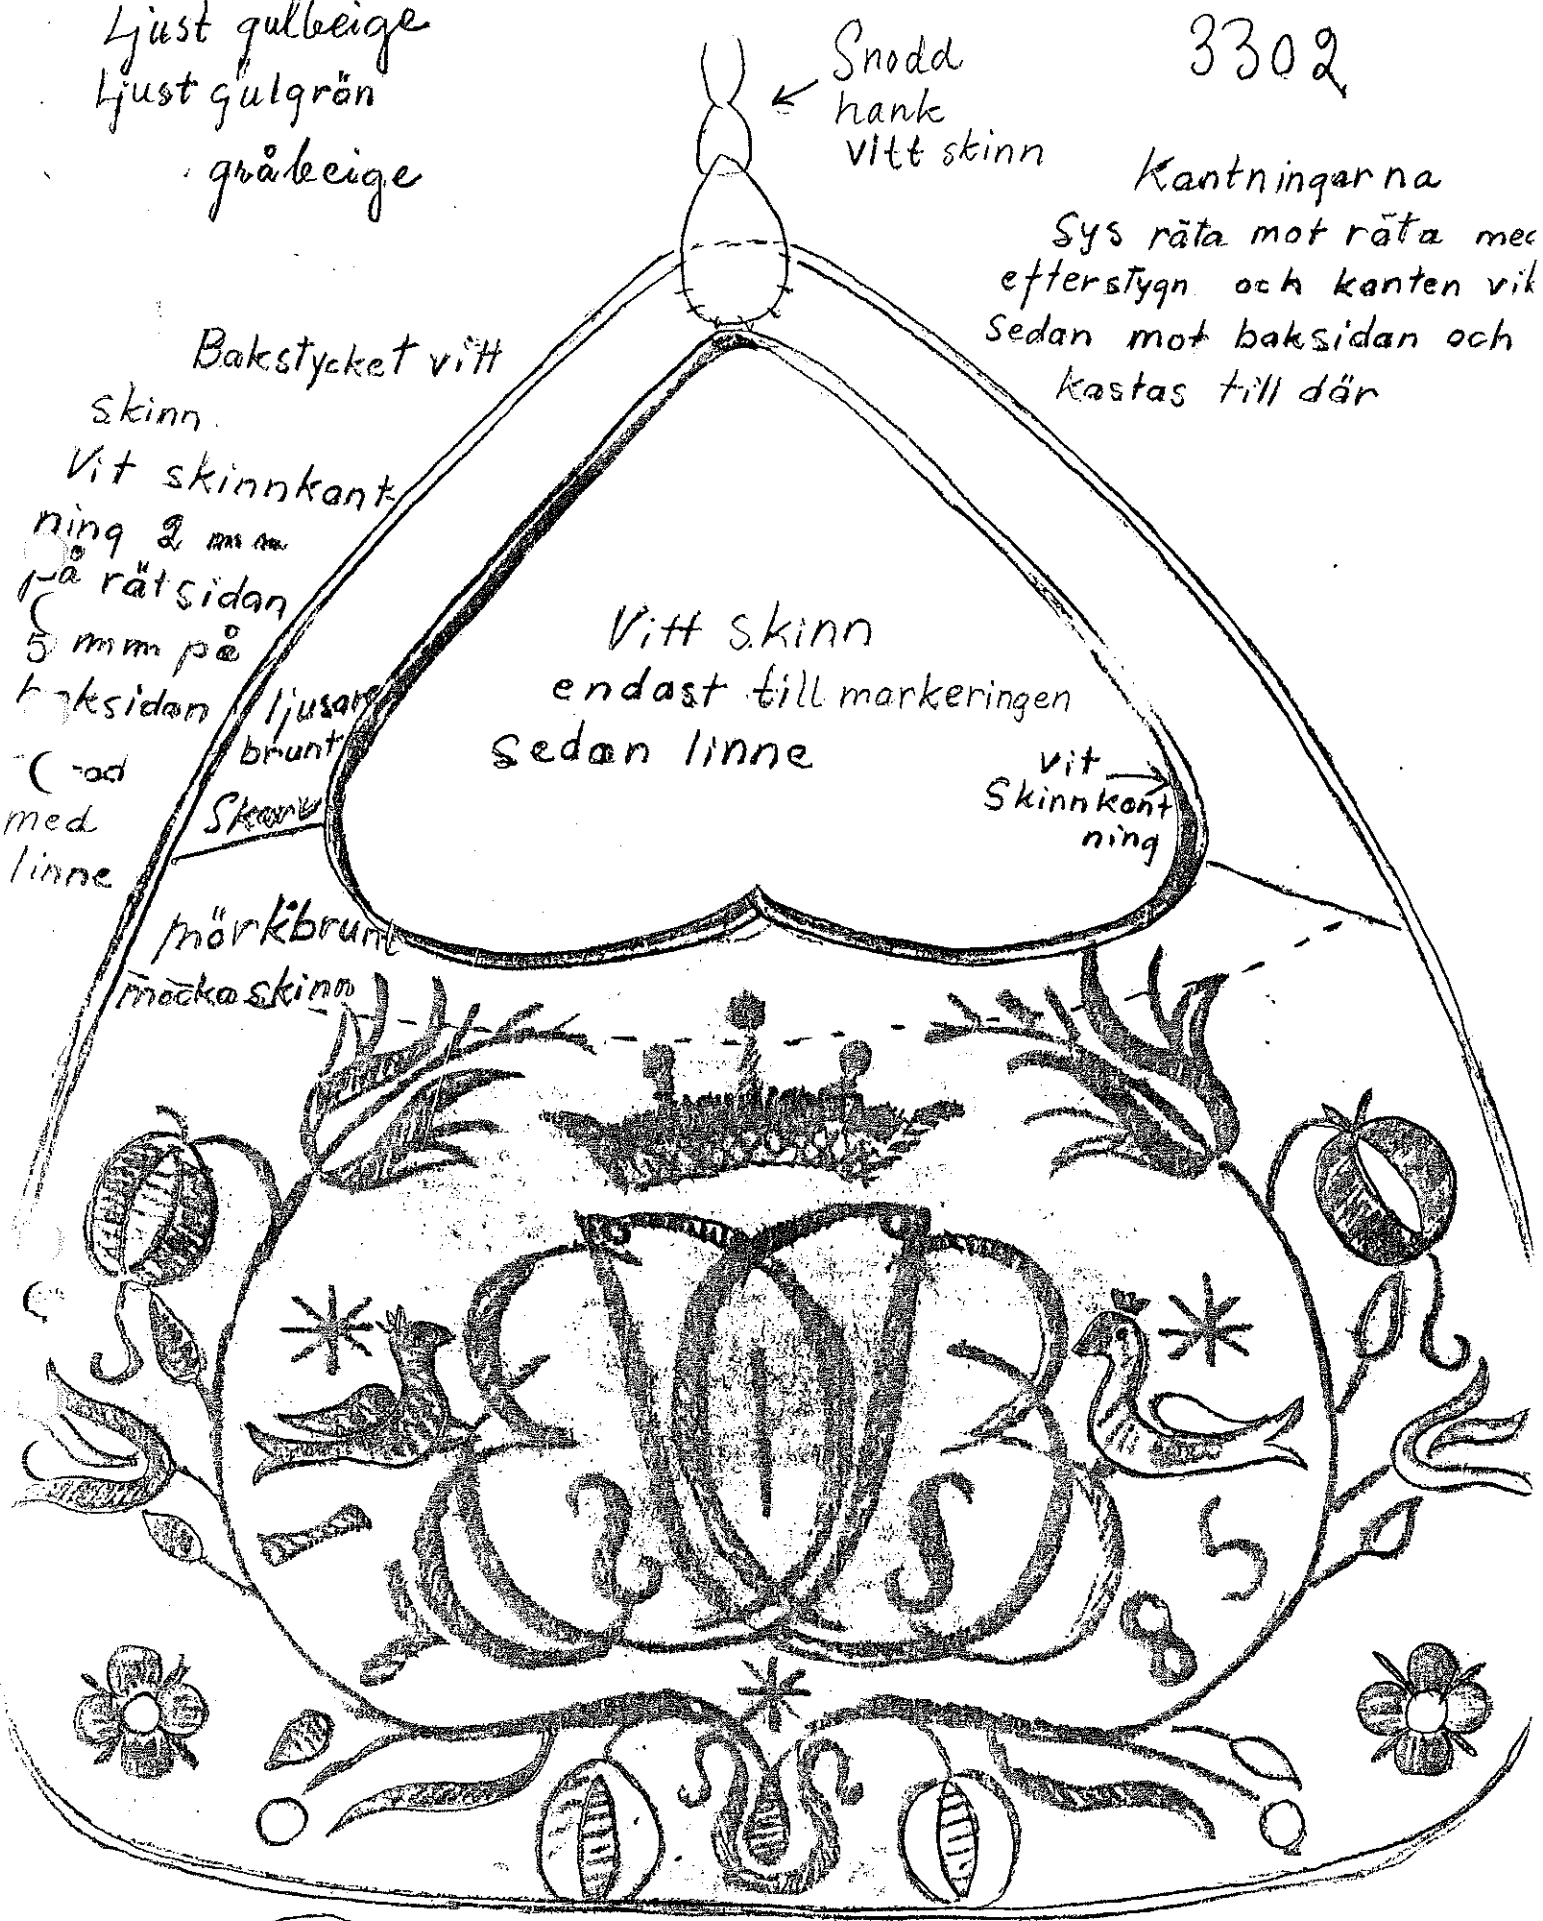 Ljust gulbeige
Ljust gulgrön
gråbeige
Snodd
hank
vitt skinn
3302
Kantningarna
Sys räta mot räta med
efterstygn och kanten vik
Sedan mot baksidan och
kastas till där
Bakstycket vitt
skinn.
Vit skinnkant-
ning 2 mm
på rätsidan
5 mm på
baksidan
med
linne
ljusare
brunt
Skarv
mörkbrunt
mockaskinn
Vitt skinn
endast till markeringen
Sedan linne
vit
Skinnkant
ning
1
5
8